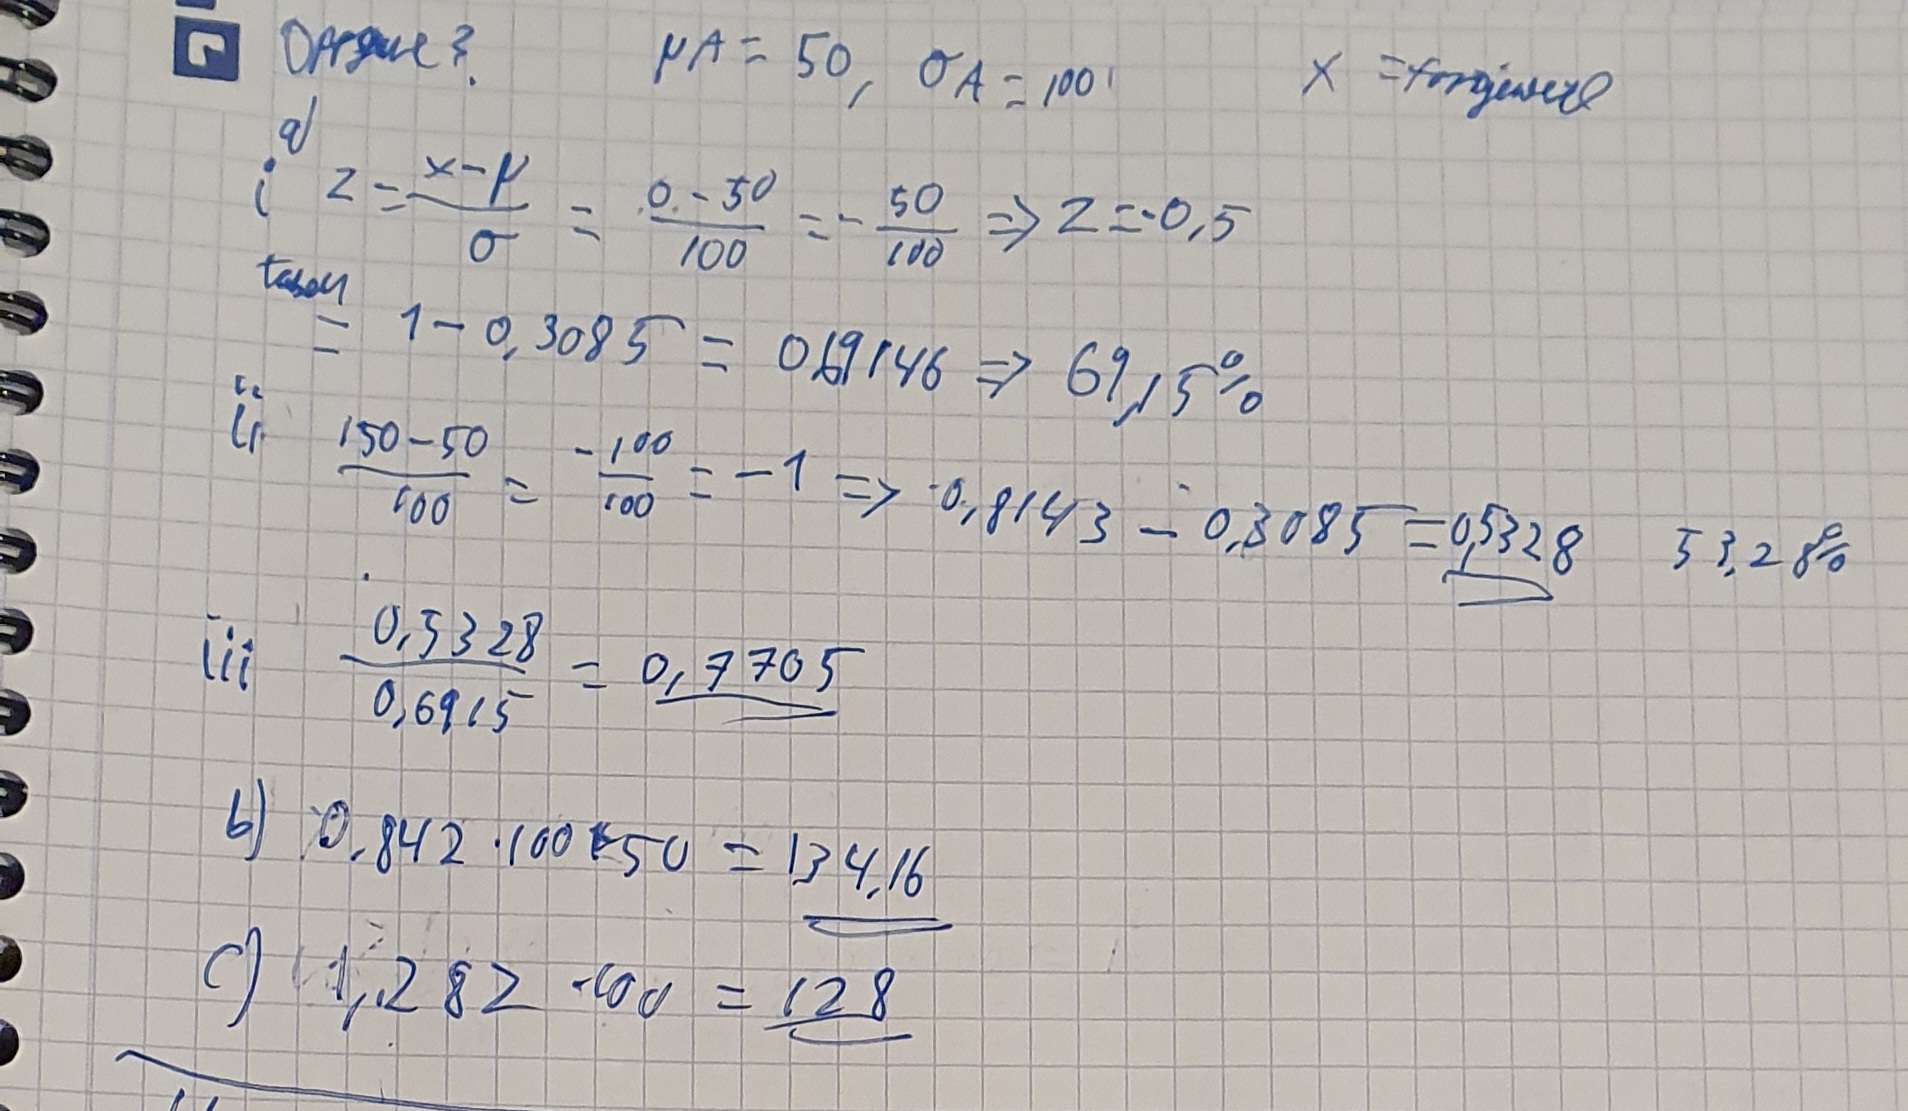 Oppgave 3. μA = 50, σA = 100 x =
a)
i z = x-μ / σ = 0-50 / 100 = - 50 / 100 => z = -0,5
tabell
= 1 - 0,3085 = 0,69146 => 69,15%
ii 150-50 / 100 = -100 / 100 = -1 => 0,8143 - 0,3085 = 0,5328 53,28%
iii 0,5328 / 0,6915 = 0,7705
b) 0,842 · 100 + 50 = 134,16
c) 1,282 · 100 = 128